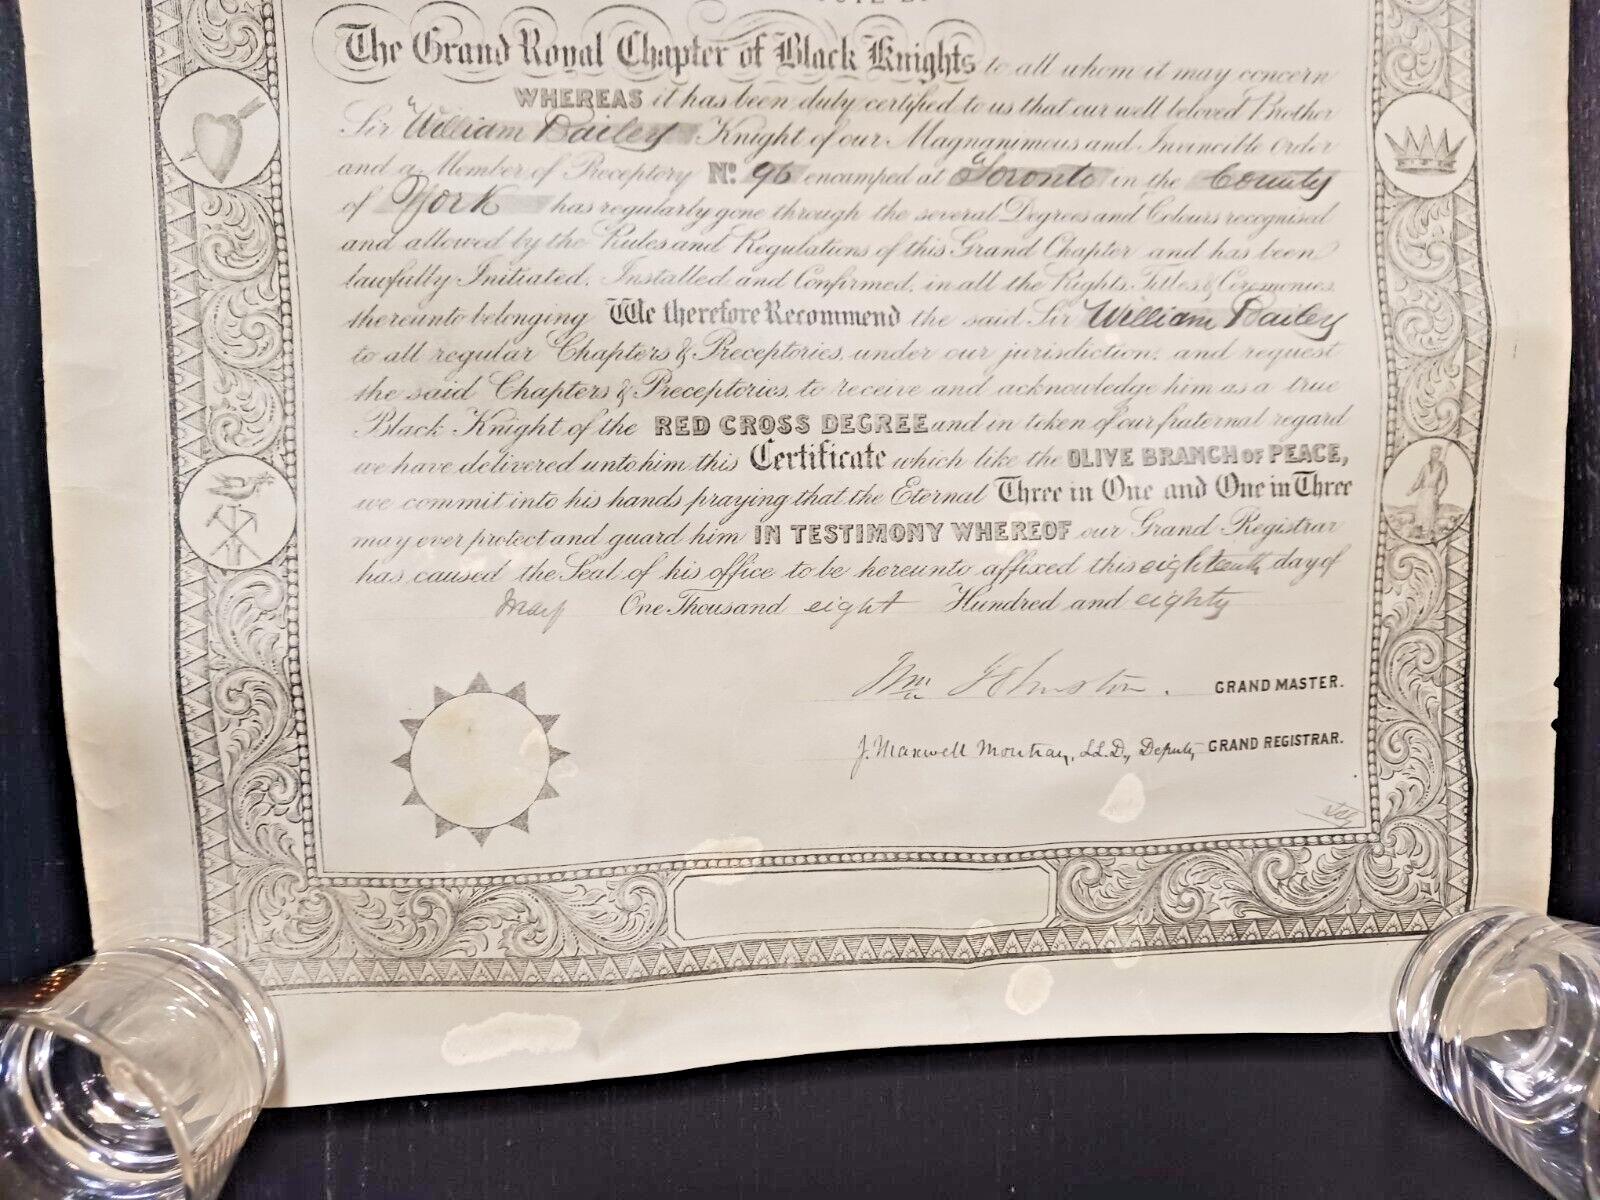 The Grand Royal Chapter of Black Knights to all whom it may concern
WHEREAS it has been duly certified to us that our well beloved Brother
Sir William Bailey Knight of our Magnanimous and Invincible Order
and a Member of Preceptory No. 96 encamped at Toronto in the County
of York has regularly gone through the several Degrees and Colours recognised
and allowed by the Rules and Regulations of this Grand Chapter and has been
lawfully Initiated, Installed and Confirmed, in all the Rights, Titles & Ceremonies
thereunto belonging We therefore Recommend the said Sir William Bailey
to all regular Chapters & Preceptories, under our jurisdiction; and request
the said Chapters & Preceptories, to receive and acknowledge him as a true
Black Knight of the RED CROSS DEGREE and in token of our fraternal regard
we have delivered unto him this Certificate which like the OLIVE BRANCH OF PEACE,
we commit into his hands praying that the Eternal Three in One and One in Three
may ever protect and guard him IN TESTIMONY WHEREOF our Grand Registrar
has caused the Seal of his office to be hereunto affixed this eighteenth day of
May One Thousand eight Hundred and eighty
Wm Johnston. GRAND MASTER.
J. Maxwell Moutray, LL.D., Deputy GRAND REGISTRAR.